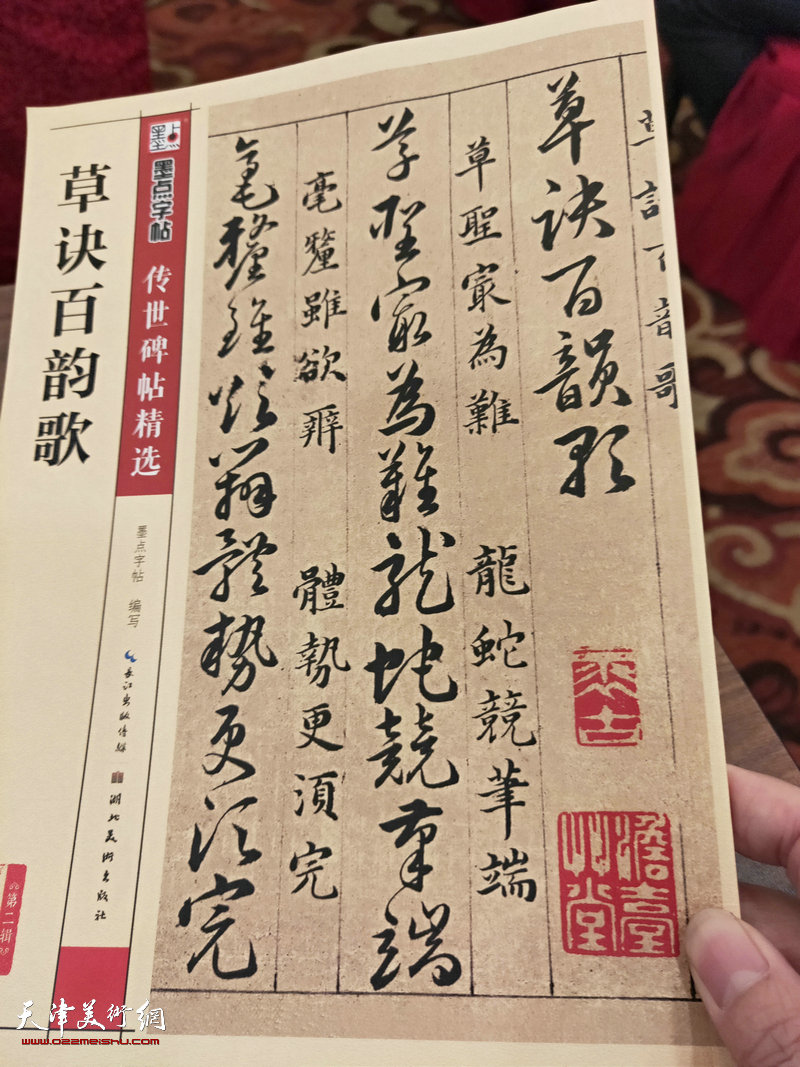 草诀百韵歌
墨点
墨点字帖
传世碑帖精选
墨点字帖 编写
长江出版传媒
湖北美术出版社
第二辑
草訣百韻歌
草訣百韻歌
草聖㝡為難 龍蛇競筆端
草聖㝡為難龍蛇競筆端
毫釐雖欲辨 體勢更須完
毫釐雖欲辨體勢更須完
澹臺
艸堂
天津美術網
www.022meishu.com